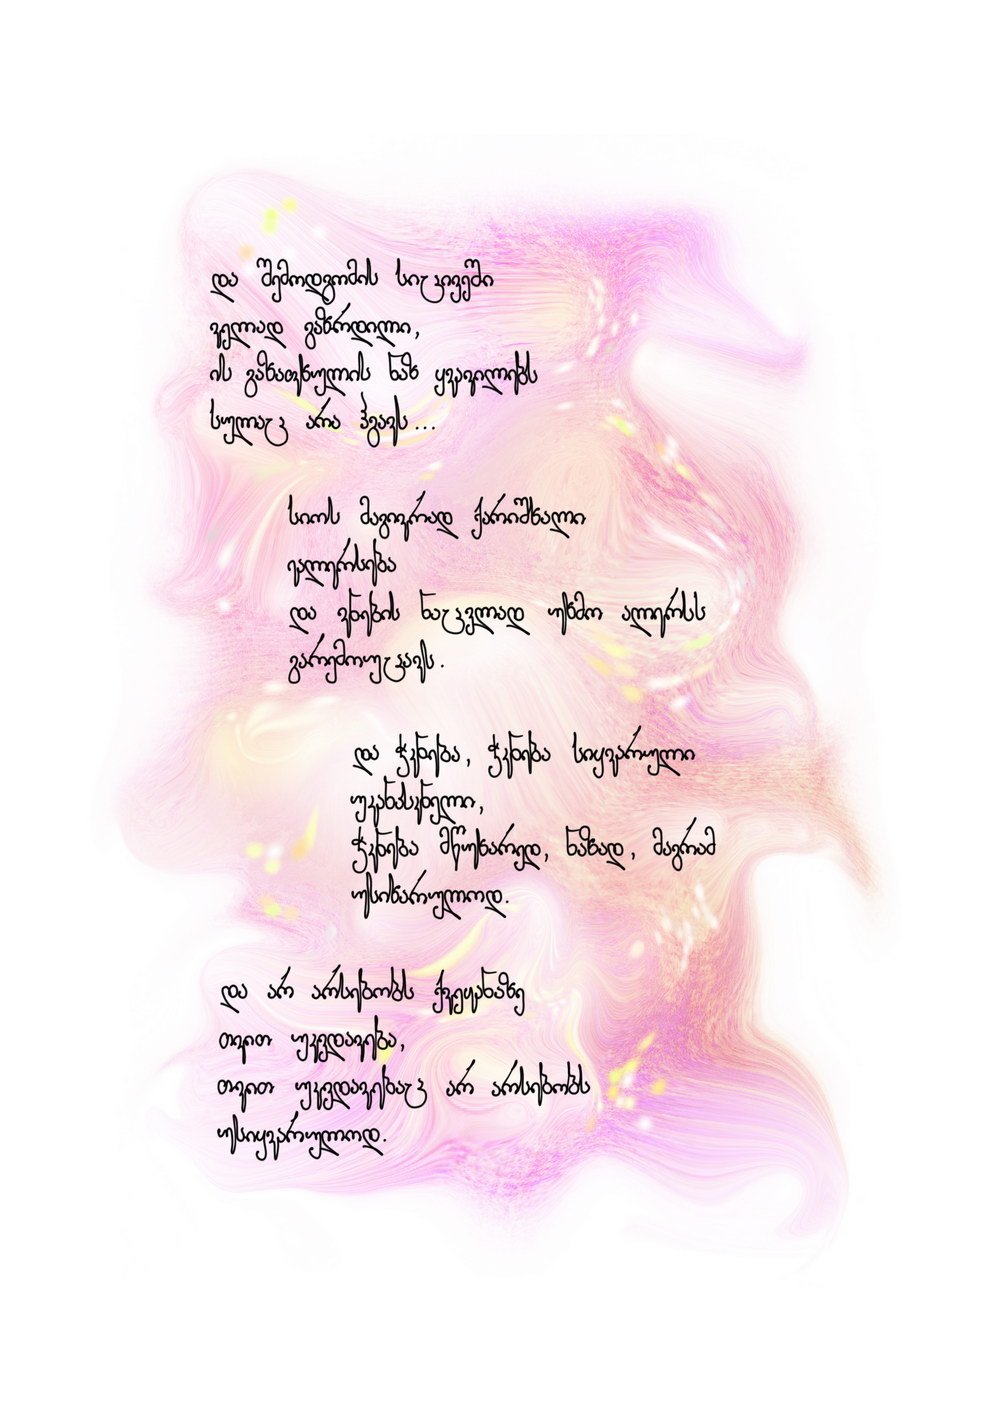 და შემოდგომის სიცივეში
ველად გაზრდილი,
ის გაზაფხულის ნაზ ყვავილებს
სულაც არა ჰგავს...
სიოს მაგივრად ქარიშხალი
ეალერსება
და ვნების ნაცვლად უხმო ალერსს
გარემოუცავს.
და ჭკნება, ჭკნება სიყვარული
უკანასკნელი,
ჭკნება მწუხარედ, ნაზად, მაგრამ
უსიხარულოდ.
და არ არსებობს ქვეყანაზე
თვით უკვდავება,
თვით უკვდავებაც არ არსებობს
უსიყვარულოდ.